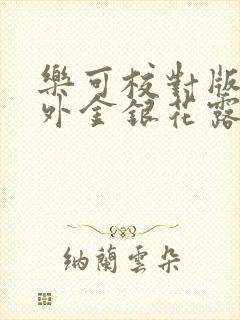 樂可校對版
外金銀花露
納蘭雲朵